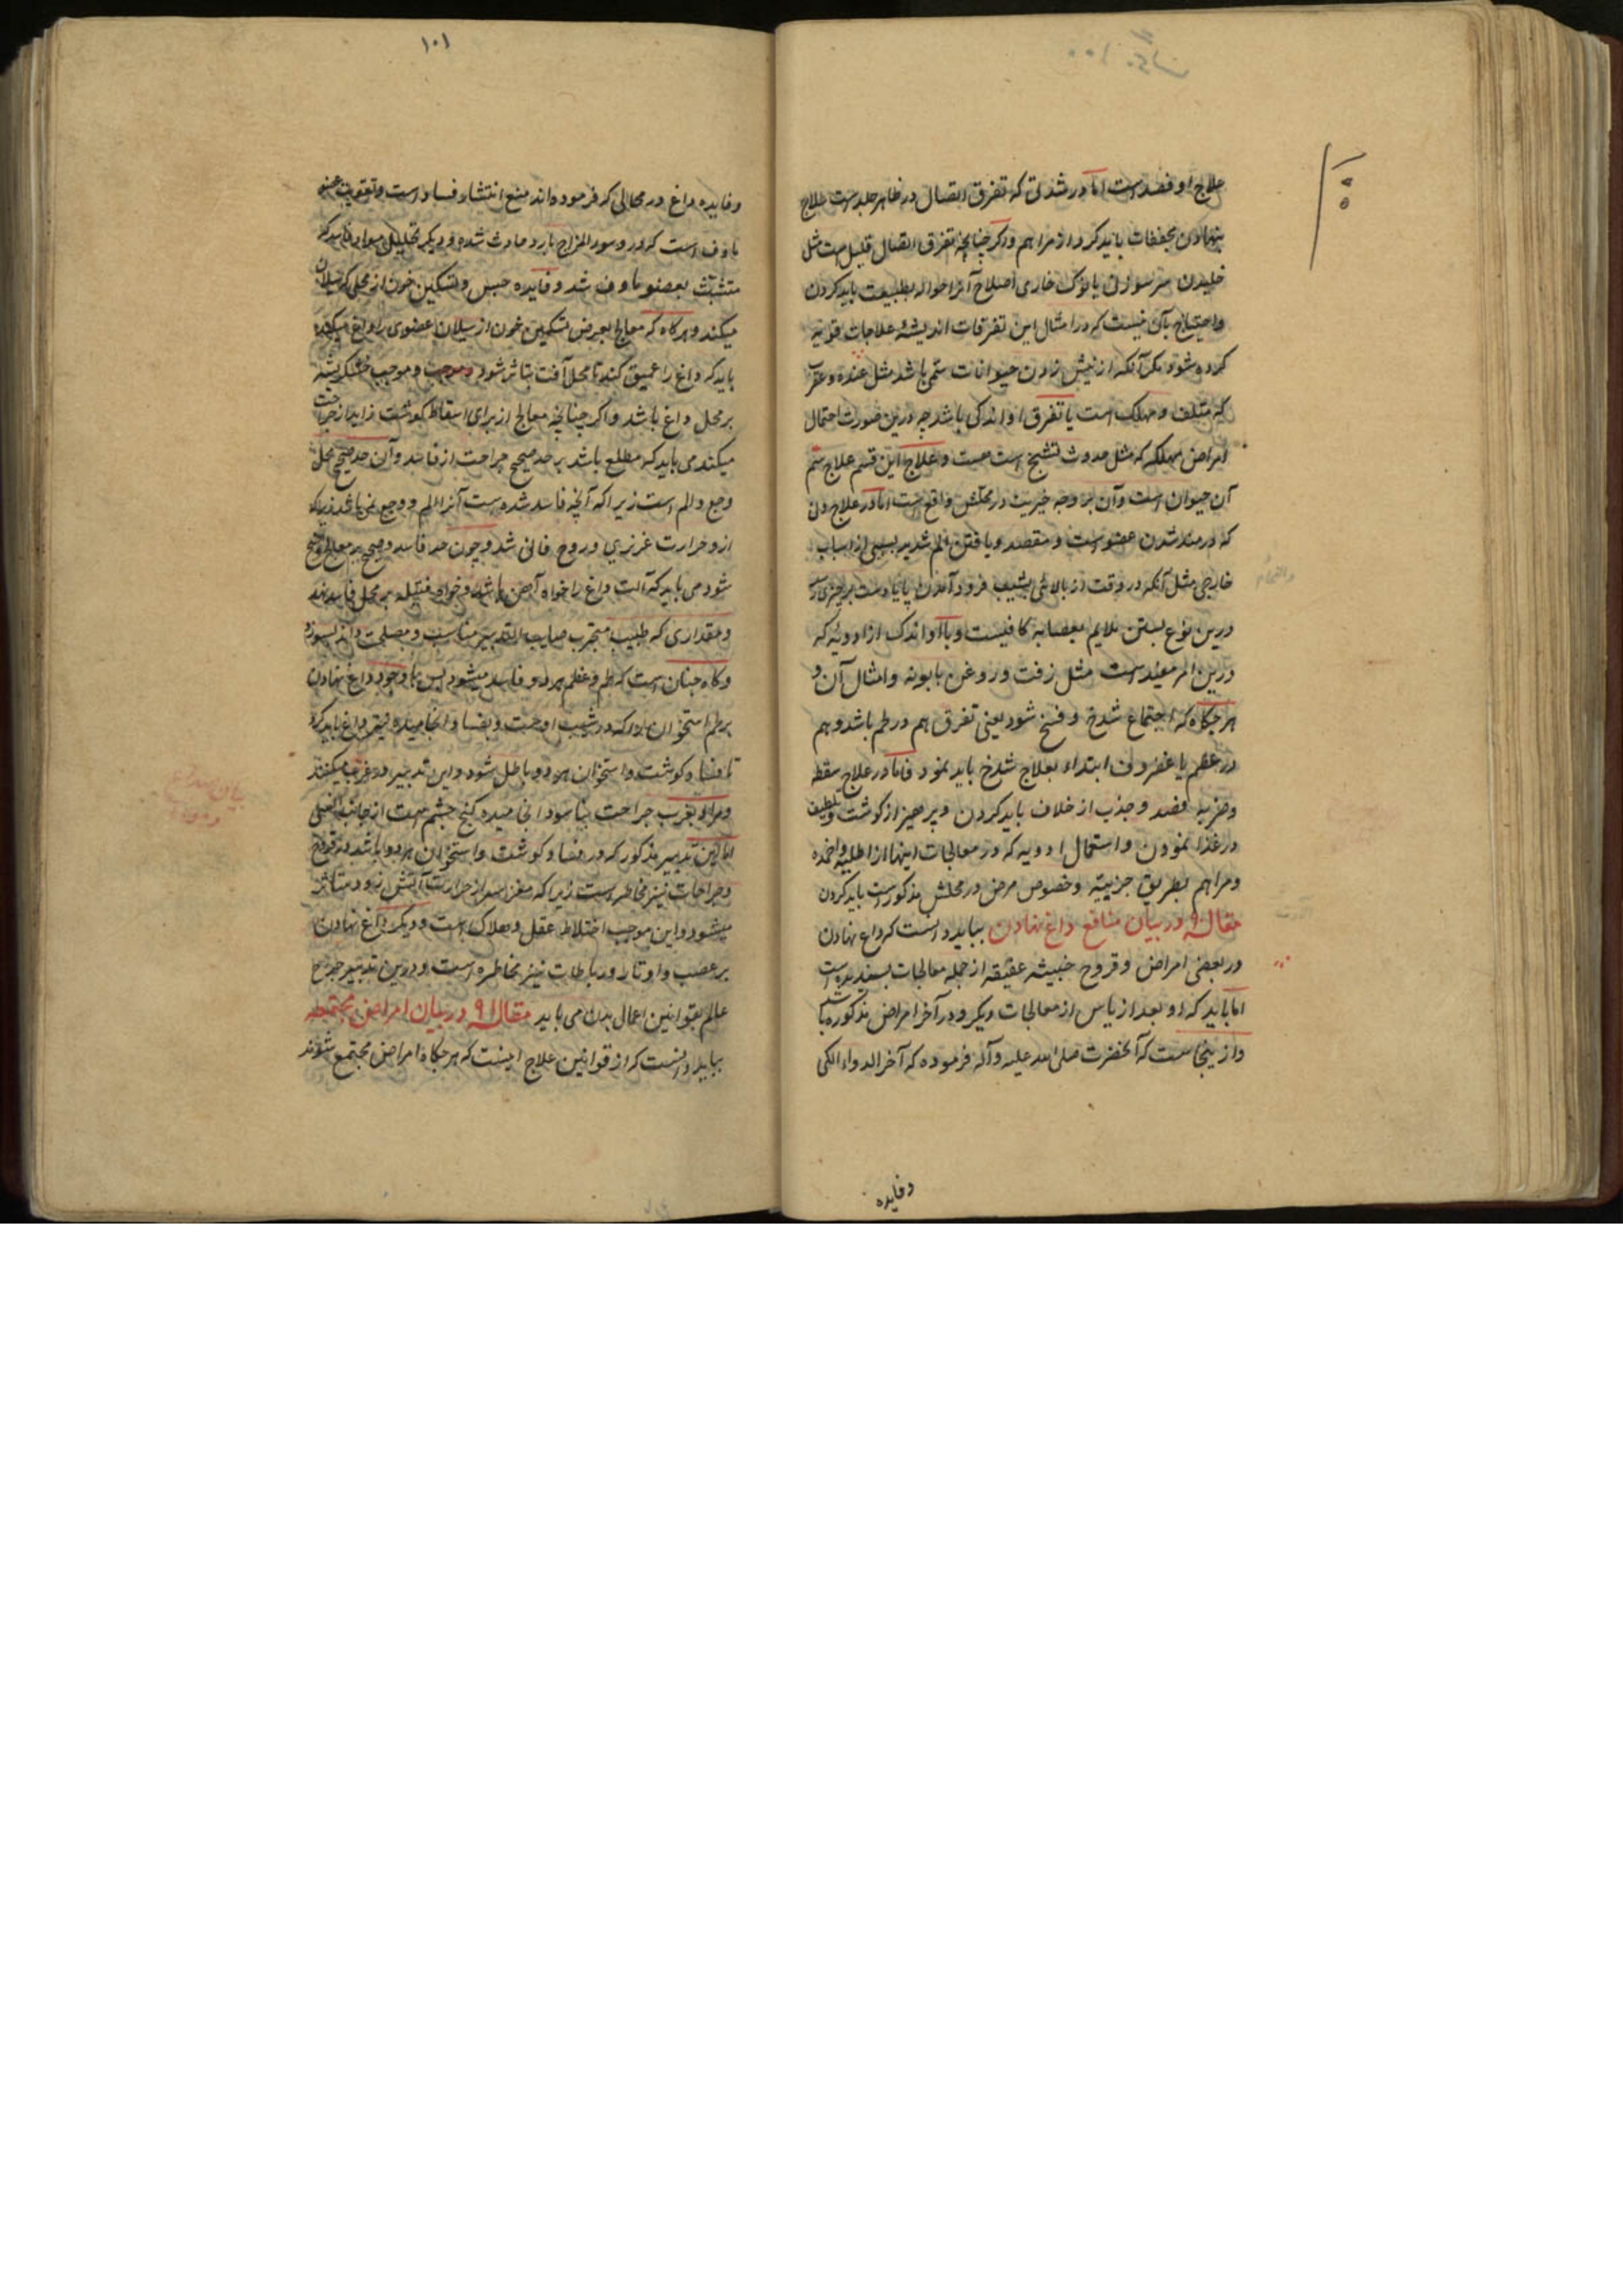 ۱۰۰
علاج او فصد است اما در شدتی که تفرق اتصال در ظاهر جلد است علاج
بنهادن مجففات باید کرد از مراهم و اگر چنانچه تفرق اتصال قلیل است مثل
خلیدن سر سوزنی یا نوک خاری اصلاح آنرا حواله بطبیعت باید کردن
و احتیاج بآن نیست که در امثال این تفرقات اندیشهٔ علاجات قویه
کرده شود مگر آنکه از نیش زدن حیوانات ستمی باشد مثل عنده و عقرب
که متلف و مهلک است یا تفرق او اندکی باشد چه درین صورت احتمال
امراض مهلکه که مثل حدوث تشنج است هست و علاج این قسم علاج سم
آن حیوان است و آن بر وجه خیریت در محلش واقع است اما در علاج ونی
که دردمند شدن عضو است و منقصد و یافتن الم شدید بسببی از اسباب
خارجی مثل آنکه در وقت از بالائی بشیب فرود آمدن پا یا دست بر چیزی رسد
درین نوع بستن ملایم بعصابه کافیست و با او اندک از ادویه که
درین امر مفید است مثل زفت و روغن بابونه و امثال آن و
هرجگاه که اجتماع شدخ و فسخ شود یعنی تفرق هم در لحم باشد و هم
در عظم یا غضروف ابتداء بعلاج شدخ باید نمود فاما در علاج سقطه
و ضربه فصد و جذب از خلاف باید کردن و پرهیز از گوشت و تلطیف
در غذا نمودن و استعمال ادویه که در معالجات اینها از اطلیه و اضمده
و مراهم بطریق جزییه و خصوص مرض در محلش مذکور است باید کردن
مقاله ۹ در بیان منافع داغ نهادن بباید دانست که داغ نهادن
در بعضی امراض و قروح خبیثه عفنه از جمله معالجات پسندیده است
اما باید که او بعد از یاس از معالجات دیگر و در آخر امراض مذکوره باشد
و از ینجاست که آنحضرت صلی الله علیه و آله فرموده که آخر الدواء الکی
وفایده
۱۰۱
و فایده داغ در محالی که فرموده‌اند منع انتشار فساد است و تقویت عضو
ماوف است که در و سوء المزاج بارد حادث شده و دیگر تحلیل مواد فاسد که
متشبث بعضو ماوف شد و فایده حبس و تسکین خون از محلی که سیلان
میکند و هرگاه که معالج بعرض تسکین خون از سیلان عضوی را داغ میکند
باید که داغ را عمیق کند تا محل آفت متاثر شود و موجب خشکریشه
بر محل داغ باشد و اگر چنانچه معالج از برای اسقاط گوشت زاید از جراحت
میکند می باید که مطلع باشد بر حد صحیح جراحت از فاسد و آن حد صحیح محل
وجع و الم است زیرا که آنچه فاسد شده است آنرا الم و وجع نمی باشد زیرا که
ازو حرارت غریزی و روح فانی شد و چون حد فاسد و صحیح بر معالج واضح
شود می باید که آلت داغ را خواه آهن باشد و خواه فتیله بر محل فاسد نهد
و مقداری که طبیب متجرب صایب التدبیر مناسب و مصلحت داند بسوزد
و گاه چنان است که لحم و عظم هر دو فاسد میشود پس با وجود داغ نهادن
بر لحم استخوان را که در شیب اوست و بفساد انجامیده نیز داغ باید کرد
تا فساد گوشت و استخوان هر دو باطل شود و این تدبیر در غرب میکنند
و مراد بغرب جراحت بناسور انجامیده کنج چشم است از جانب انفسی
اما این تدبیر مذکور که در فساد گوشت و استخوان هر دو باشد در قروح
و جراحات نیز مخاطره است زیرا که مغز سر از حرارت آتش زود متاثر
میشود و این موجب اختلاط عقل و هلاک است و دیگر داغ نهادن
بر عصب و اوتار و رباطات نیز مخاطره است و درین تدبیر جراح
عالم بقوانین اعمال بدن می باید مقاله ۹۱ در بیان امراض مجتمعه
بباید دانست که از قوانین علاج اینست که هرجگاه امراض مجتمع شوند